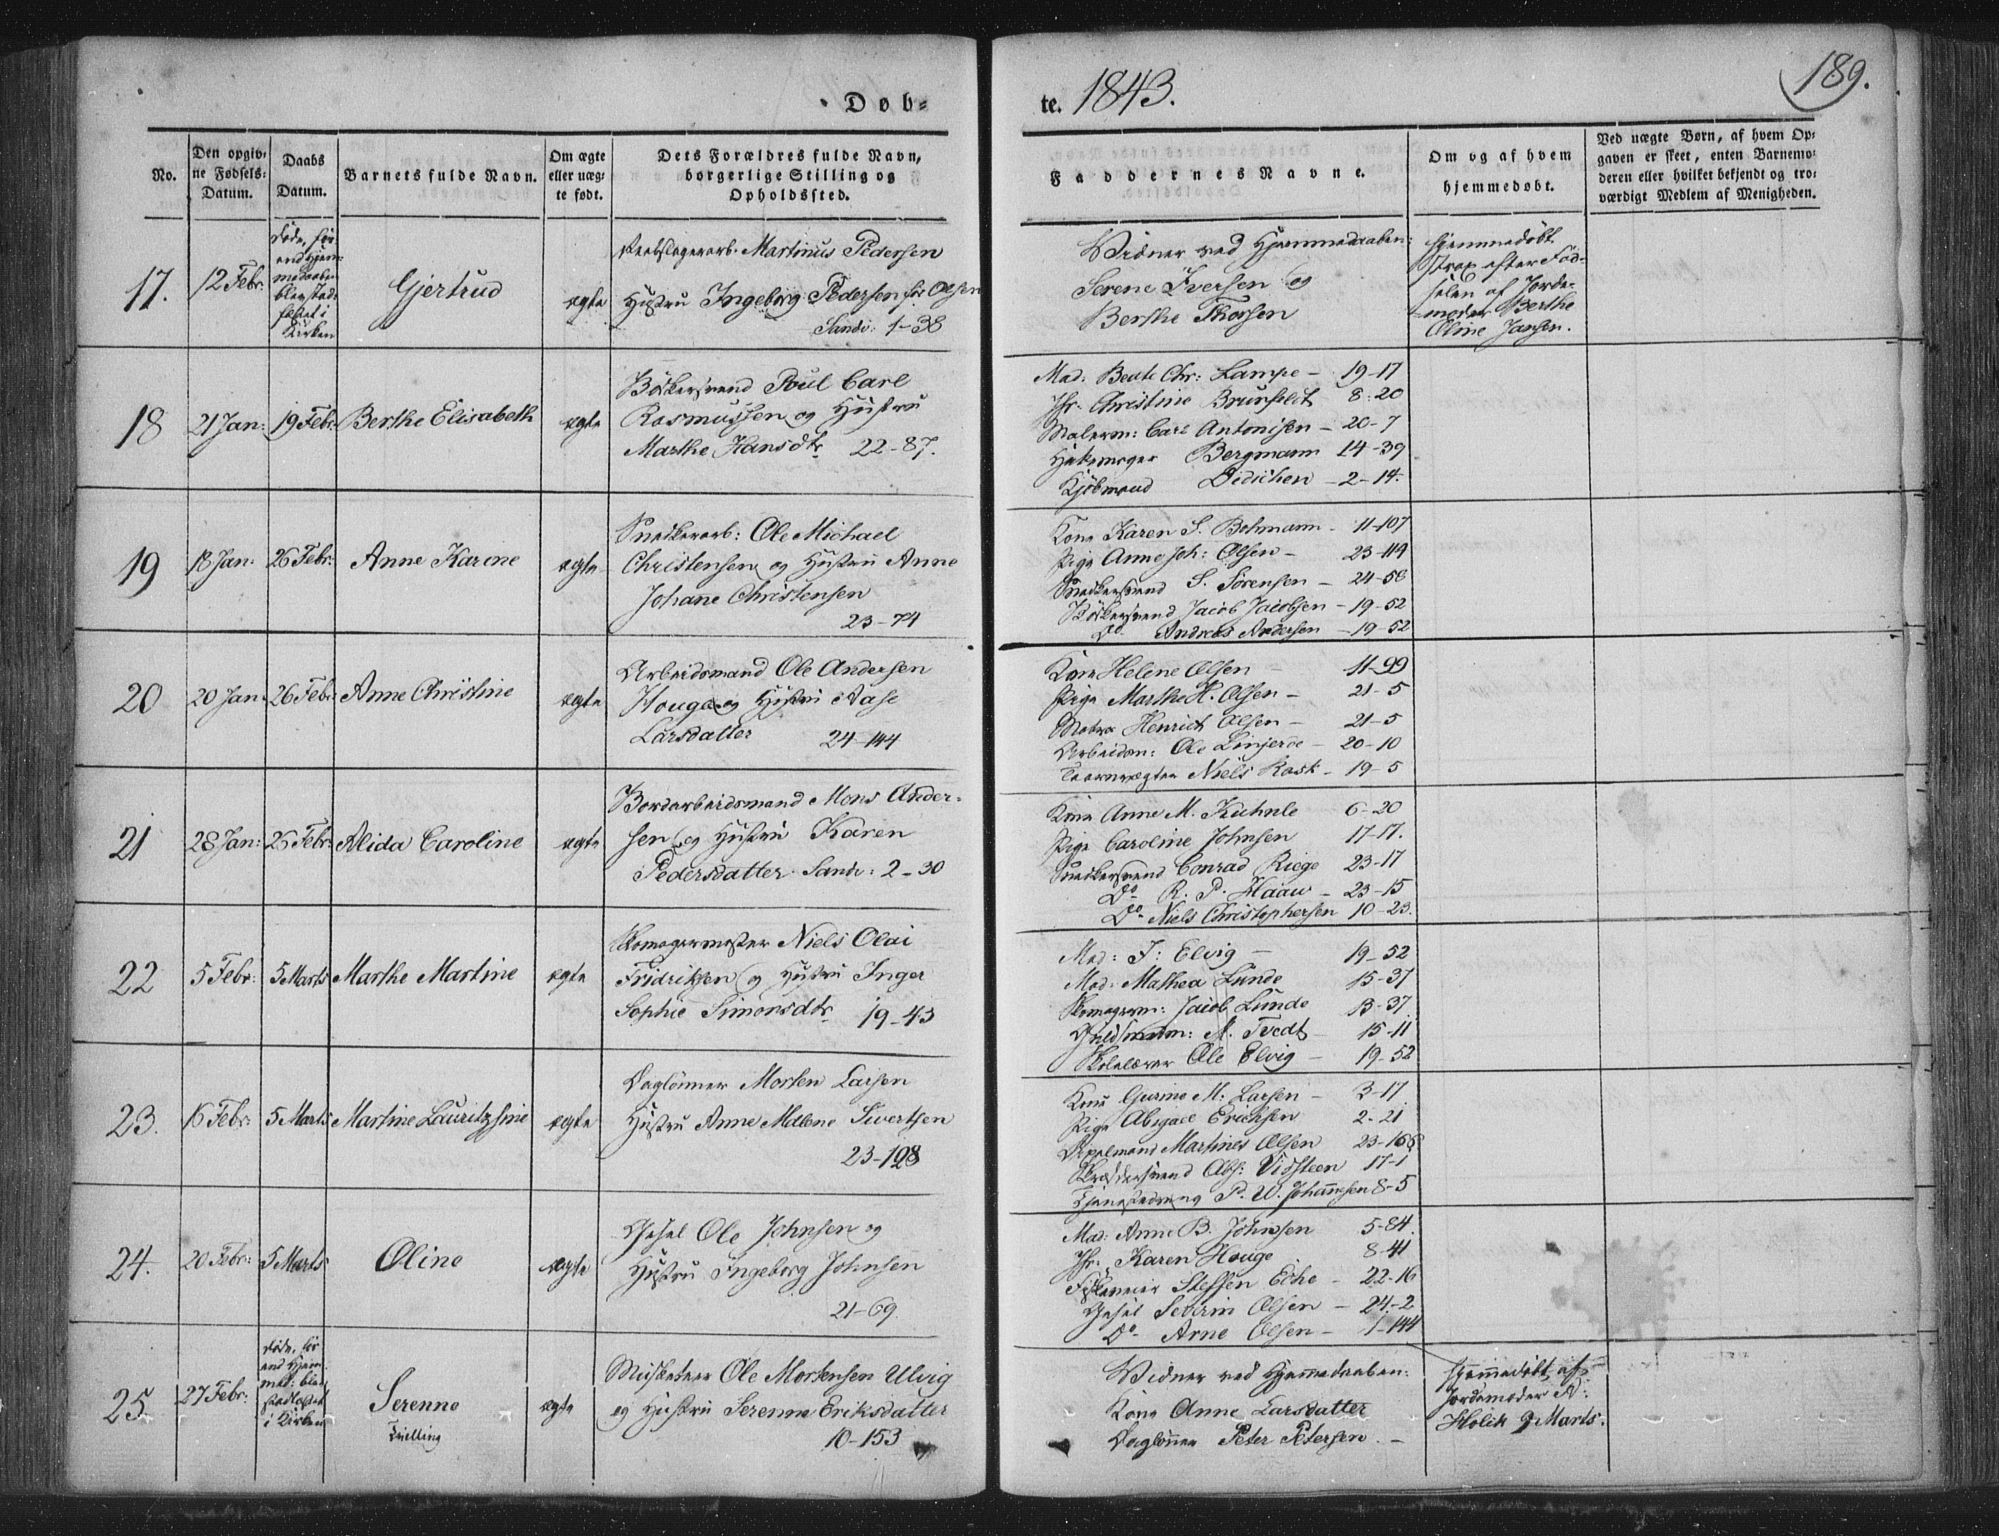 Døb=
te. 1843.
189.
No.
Den opgiv=
ne Fødsels=
Datum.
Daabs
Datum.
Barnets fulde Navn.
Om ægte
eller uæg=
te født.
Dets Forældres fulde Navn,
borgerlige Stilling og
Opholdssted.
Faddernes Navne.
Om og af hvem
hjemmedøbt.
Ved uægte Børn, af hvem Op=
gaven er skeet, enten Barnemo=
deren eller hvilket bekjendt og tro=
værdigt Medlem af Menigheden.
17.
12 Febr:
døde, før
end Hjem-
medaaben
blev stad-
fæstet i
Kirken
Gjertrud
ægte
Reebslagerarb. Martinus Pedersen
Hustru Ingeborg Pedersen før Olsen
Sandv: 1-38
Vidner ved Hjemmedaaben:
Serene Iversen og
Berthe Thorsen
hjemmedøbt
strax efter Fød-
selen af Jorde-
moder Berthe
Oline Jansen.
18
21 Jan:
19 Febr:
Berthe Elisabeth
ægte
Bødkersvend Poul Carl
Rasmussen og Hustru
Marthe Hansdtr 22-87.
Mad: Beate Chr: Lampe - 19-17
Jfr. Christine Brunholdt 8-20
Malerm: Carl Antonisen - 20-7
Hattemager Bergmann 14-39
Kjøbmand Didichen - 2-14.
19
18 Jan:
26 Febr:
Anne Karine
ægte
Snedkerarb: Ole Michael
Christensen og Hustru Anne
Johane Christensen
23-74
Kone Karen S. Bohmann - 11-107
Pige Anne Joh: Olsen - 23-119
Snedkersvend S. Sørensen - 24-58
Bødkersvend Jacob Jacobsen - 19-52
Do. Andreas Andersen - 19-52
20
20 Jan:
26 Febr:
Anne Christine
ægte
Arbeidsmand Ole Andersen
Houge og Hustru Aase
Larsdatter 24-144
Kone Helene Olsen - 11-99
Pige Marthe H. Olsen - 21-5
Matros Henrich Olsen - 21-5
Arbeidsm: Ole Linjeroe - 20-10
Taarnvægter Niels Rask - 19-5
21
28 Jan:
26 Febr:
Alida Caroline
ægte
Bordarbeidsmand Mons Ander-
sen og Hustru Karen
Pedersdatter. Sandv: 2-30
Kone Anne M. Kuhnle 6-20
Pige Caroline Johnsen 17-17.
Snedkersvend Conrad Riege 23-17
Do R. P. Haau - 23-15
Do. Niels Christophersen 10-23.
22
5 Febr:
5 Marts
Marthe Martine
ægte
Skomagermester Niels Olai
Fridriksen og Hustru Inger
Sophie Simonsdtr 19-43
Mad: J: Elvig - 19-52
Mad: Mathea Lunde 15-37
Skomagerm: Jacob Lunde 15-37.
Guldsmedm: M. Tvedt - 15-11
Skolelærer Ole Elvig - 19-52
23.
16 Febr:
5 Marts
Martine Lauritzsine
ægte
Daglønner Morten Larsen
Hustru Anne Malene Sivertsen
23-198
Kone Gurine M. Larsen - 3-17
Pige Abigael Erichsen 2-21
Martines Olsen 23-165
Skræddersvend Abs: Vidsteen 17-1
Tjenestedreng P. W. Johannesen 8-5
24.
20 Febr:
5 Marts
Oline
ægte
Gesel Ole Johnsen og
Hustru Ingeborg Johnsen
21-69.
Mad: Anne B. Johnsen 5-84.
Jfr. Karen Houge 8-41
Steffen Eche - 22-16
Gesel Severin Olsen - 24-2
Do. Arne Olsen - 1-144
25.
27 Febr:
døde, før
end Hjem-
med: blev
stadfæstet
i Kirken
Serenne
Tvelling
ægte
Musketeer Ole Mortensen Ulvig
og Hustru Serenne Eriksdatter
10-153
Vidner ved Hjemmedaaben:
Kone Anne Larsdatter
Daglønner Peter Petersen. -
hjemmedøbt af
Jordemoder A:
Holck 9 Marts.